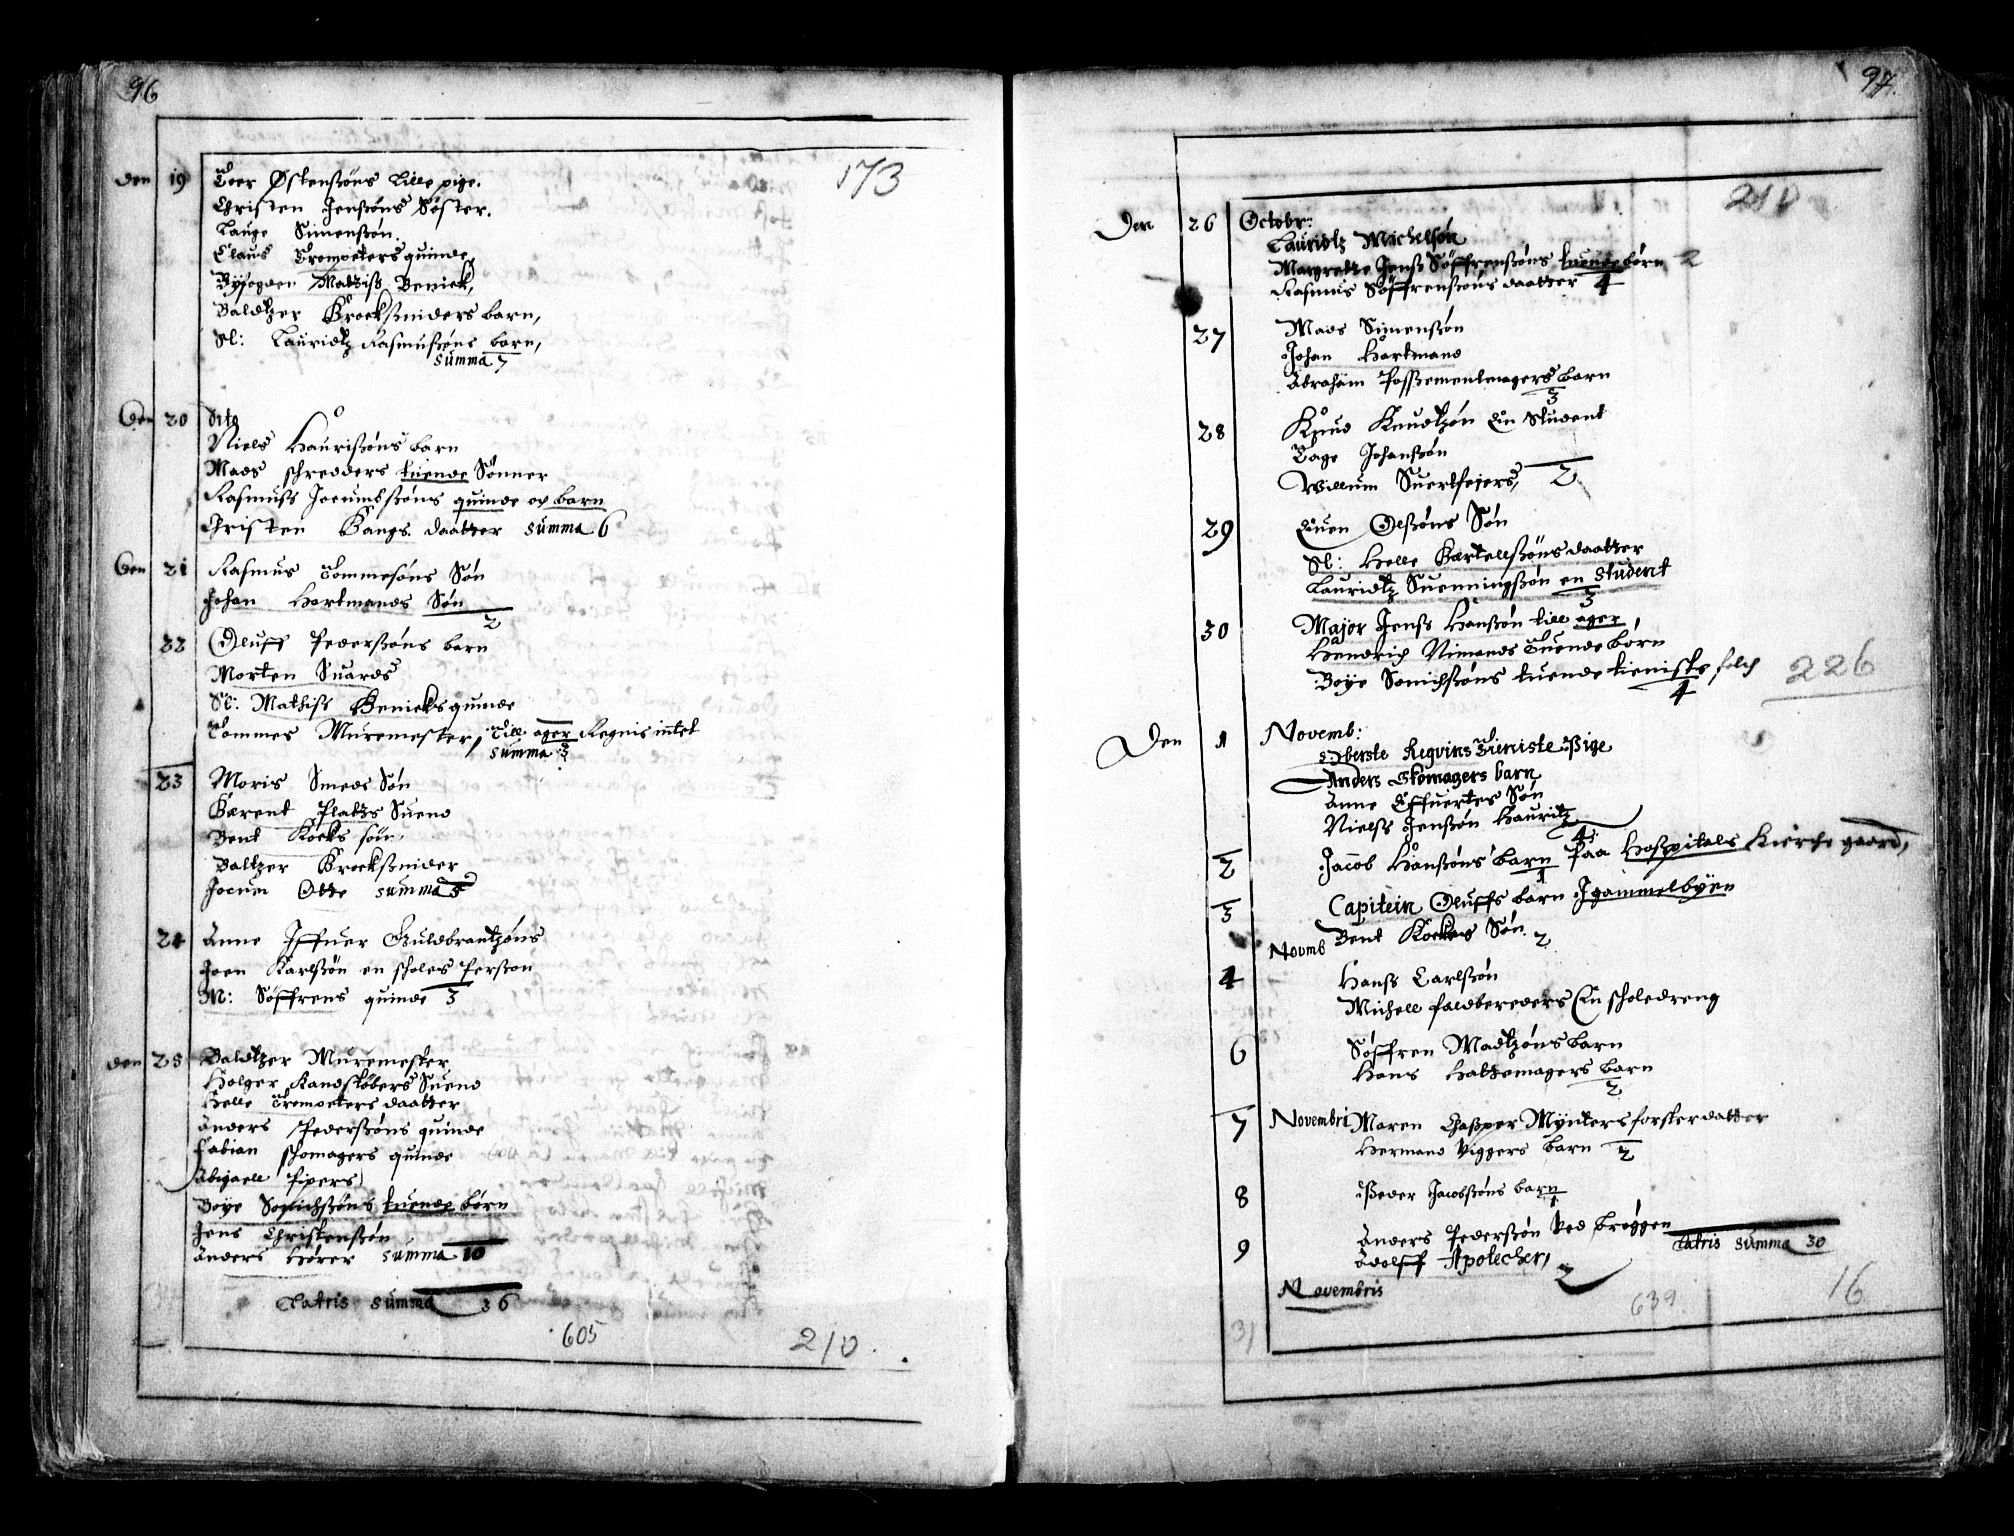 96
173
den 19 Toer Østensøns Lille pige.
Christen Jensøns Søster.
Lauge Simensøn.
Claus Trompeters quinde,
Bysogden Matthiß Beniek,
Baldtzer Brockßniders barn,
Sl: Lauridtz Rasmusøns barn,
summa 7
Den 20 dito
Niels Haurißøns barn
Mads schredders tuende Sønner
Rasmuss Joeumbßøns quinde og barn
Christen Bangs daatter summa 6
Den 21 Rasmus Tommesøns Søn
Johan Hartmands Søn
2
22 Oluff Pederßøns barn
Morten Suards
Sl: Mathiß Benieks quinde
Tommes Muremester, Till ager Regnis intet
summa 3
23 Moris Smeds Søn
Bærent Platzs Suend
Bent Kocks søn
Baltzer Brockßnider
Jocum Otte summa 5
24 Anne Iffuer Guldbrantzøns
Joen Karlßøn en scholes Person
M: Søffrens quinde 3
den 25 Baldtzer Muremester
Holger Kandstøbers Suend
Helle Trompeters daatter
Anders Pederßøns quinde
Fabian schomagers quinde
Abigaell Pipers
Boye Sonichßøns tuende børn
Jens Christenßøn
Anders Hører summa 10
Latris summa 36
605
210.
97.
210
Den 26 Octobr:
Lauridtz Michelsøn
Margrette Jenß Søffrensøns tuende børn 2
Rasmus Søffrenßøns daatter 4
27 Mads Simensøn
Johan Hartmand
Abraham Possementmagers barn
3
28 Knud Knudtzøn En Student
Tage Johanßøn
Willum Suertfejers, 2
29 Euen Olßøns Søn
Sl: Helle Bærtellßøns daatter
Lauridtz Suenningßøn en Student
3
30 Major Jenss Hansøn till ager,
Hendrich Nimands Tuende børn
Boye Sonichßøns tuende tieniste folch
4
226
Den 1 Novemb:
Oberste Regvins Tieniste Pige
Anders Skomagers barn
Anne Effuertes Søn
Nielss Jenßøn Hauritz
4
2 Jacob Hansøns barn Paa Hospitals Kierche gaard,
1
3 Capitein Oluffs barn I gammelbyen
Novmb Bent Kockes Søn. 2
4 Hanss Carlßøn
Michell faldbereders En scholedreng
6 Søffren Madtzøns barn
Hans Hattemagers barn
2
7 Novembri Maren Casper Mynters forster datter
Hermand Viggers barn 2
8 Peder Jacobßøns barn
1
9 Anders Pedersøn Ved brøggen
Adolff Apotecher, 2
Latris summa 30
Novembris
639.
16
31